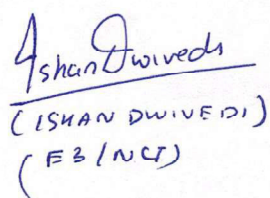 Ishan Dwivedi
(ISHAN DWIVEDI)
(E3/NCT)